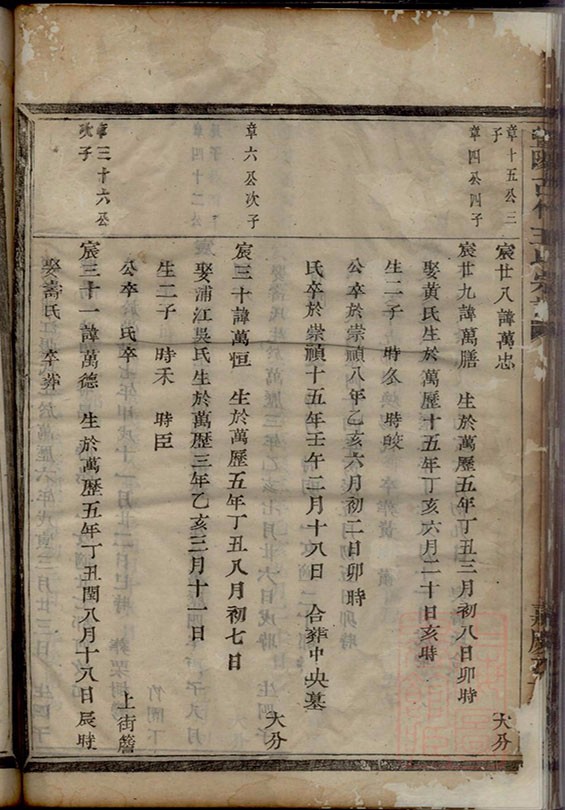 章十五公三
子
宸廿八諱萬忠
大分
章四公四子
宸廿九諱萬膳 生於萬歷五年丁丑三月初八日卯時
娶黃氏生於萬歷十五年丁亥六月二十日亥時
生二子 時 時皎
公卒於崇禎八年乙亥六月初二日卯時
氏卒於崇禎十五年壬午二月十八日 合葬中央墓
章六公次子
宸三十諱萬恒 生於萬歷五年丁丑八月初七日
大分
娶浦江吳氏生於萬歷三年乙亥三月十一日
生二子 時禾 時臣
公卒於 氏卒
上街簷
章三十六公
次子
宸三十一諱萬德 生於萬歷五年丁丑閏八月十八日辰時
娶壽氏 卒葬